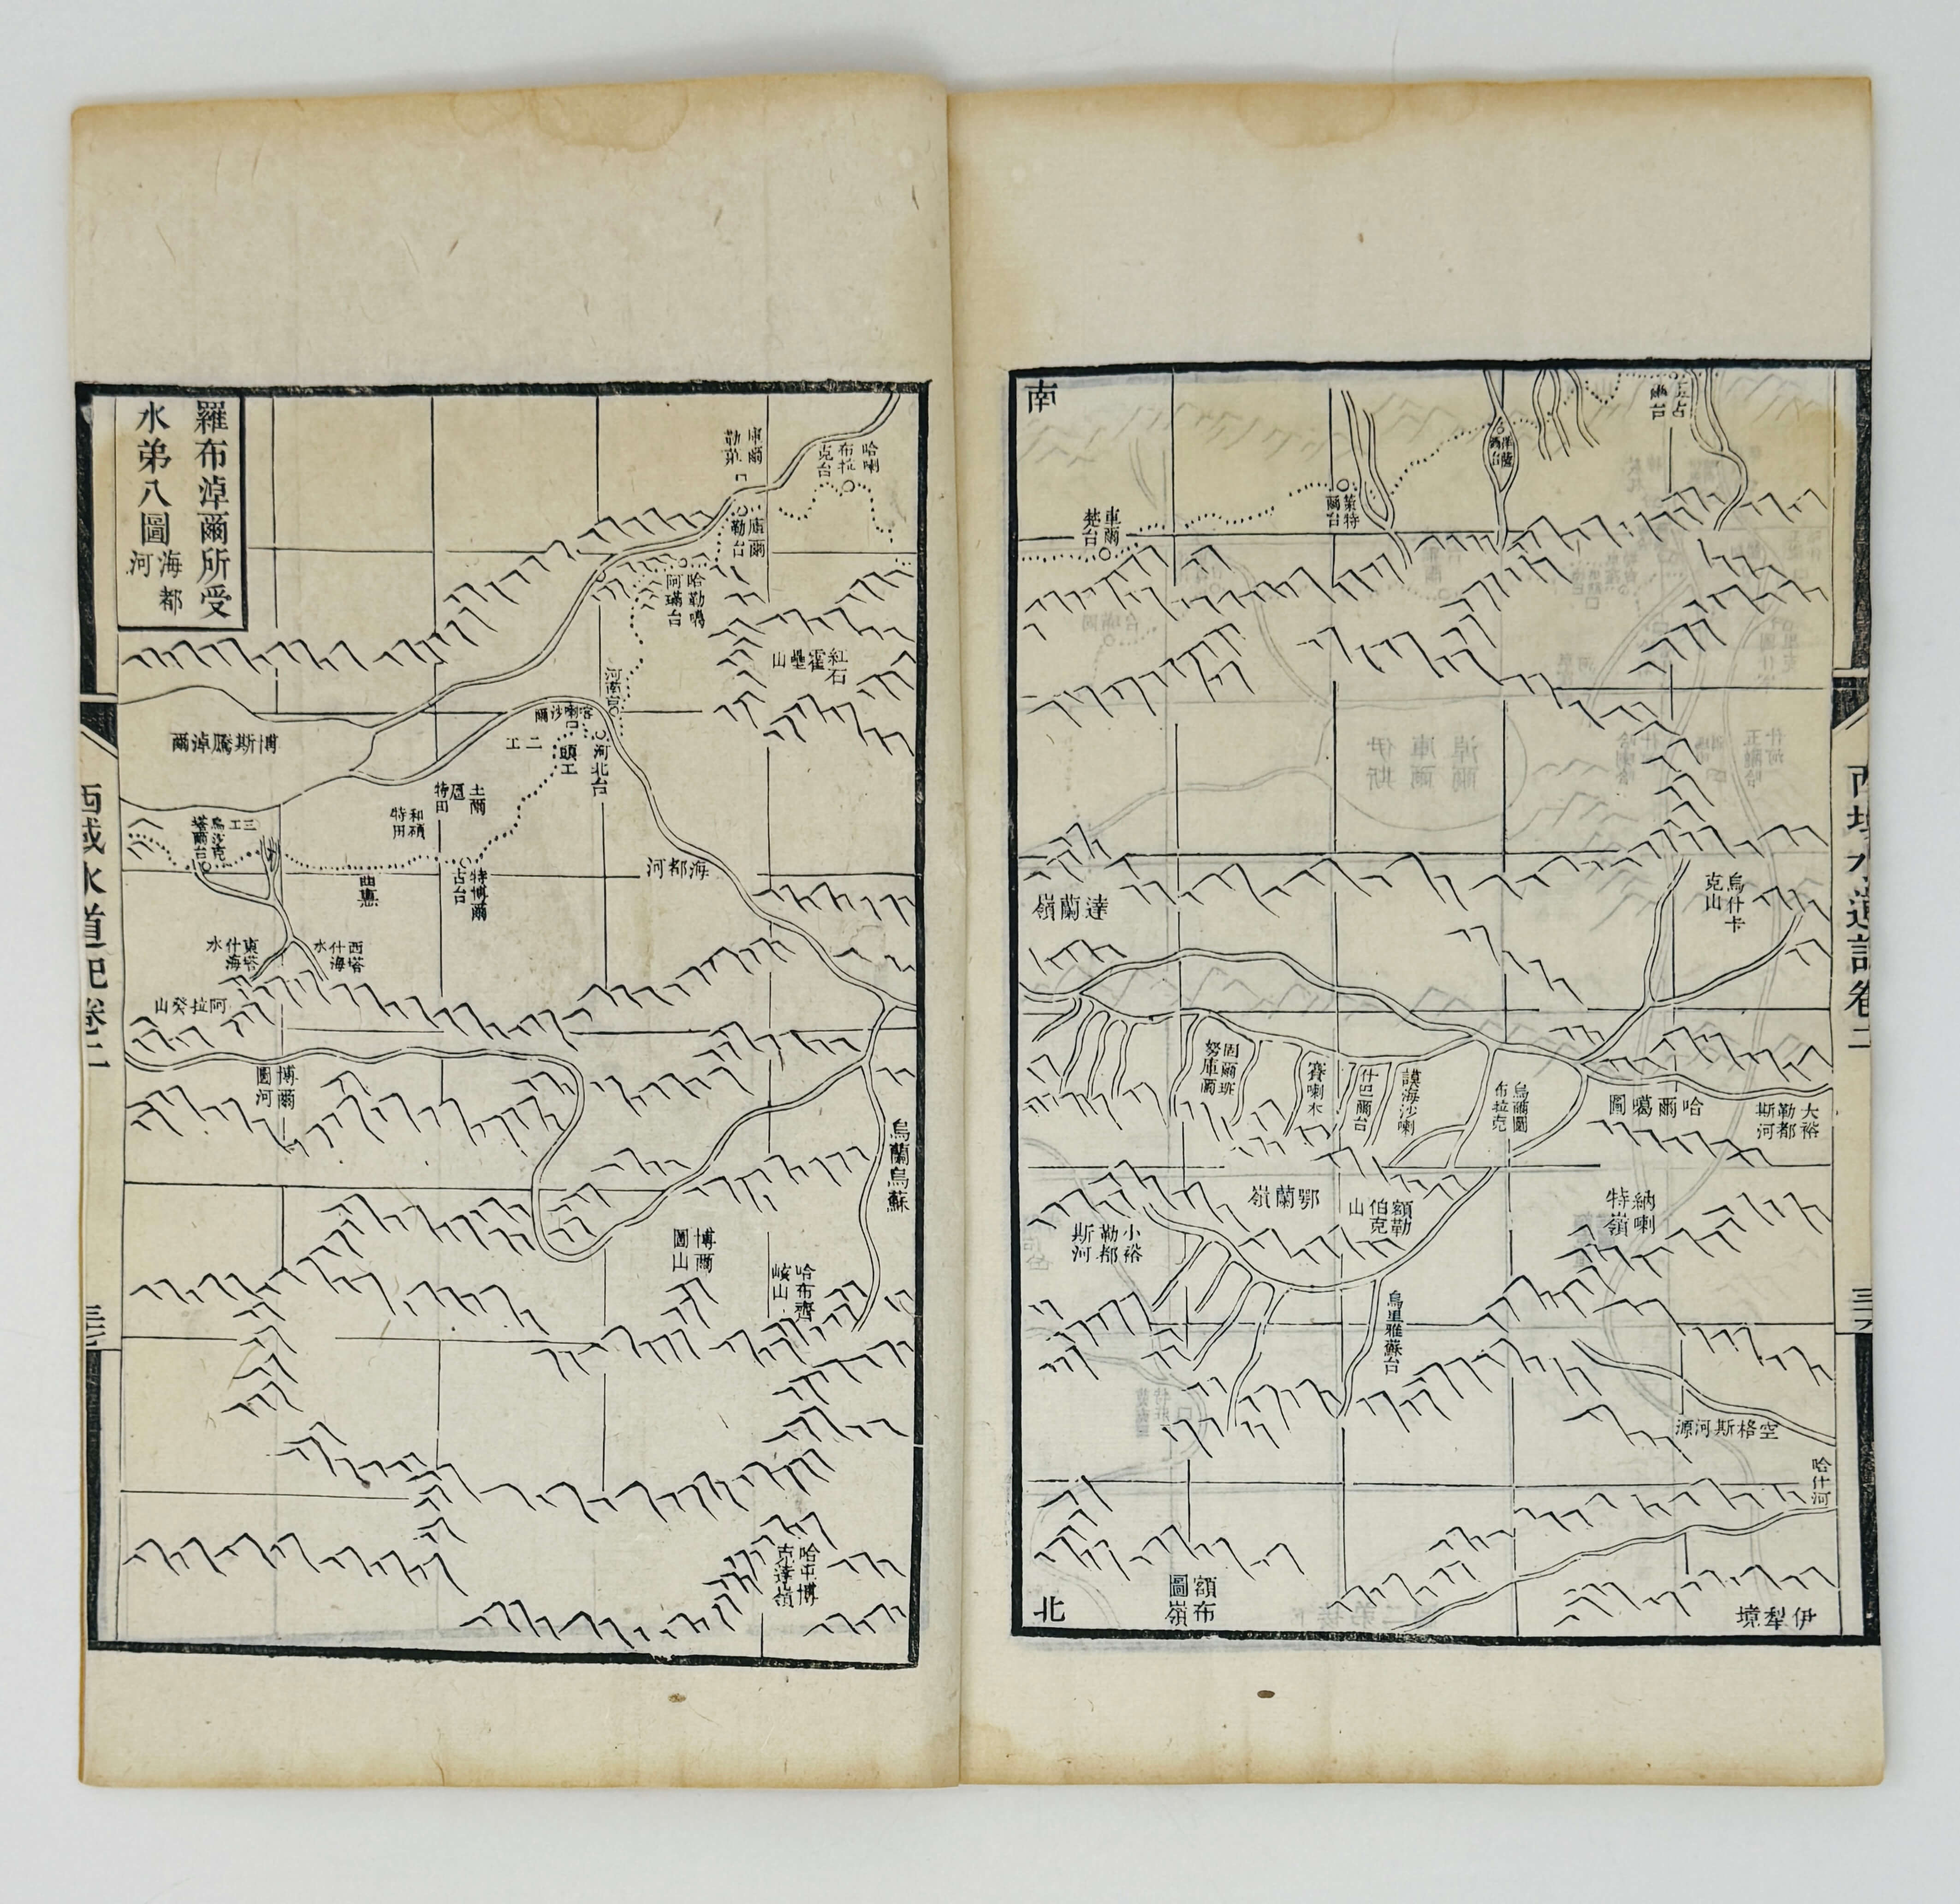 南
車爾
楚台
策特
爾台
洋薩
爾台
達蘭嶺
烏什卡
克山
固爾班
努庫爾
賽喇木
什巴爾台
謨海沙喇
烏爾圖
布拉克
哈爾噶圖
大裕
勒都
斯河
納喇
特嶺
額勒
伯克
山
鄂蘭嶺
小裕
勒都
斯河
烏里雅蘇台
空格斯河源
哈什河
額布
圖嶺
伊犁境
北
西域水道記卷二
羅布淖爾所受
水弟八圖
海都
河
哈喇
布拉
克台
庫爾
勒莊
庫爾
勒台
哈勒噶
阿璊台
紅石
霍壘山
河南台
喀喇沙爾
河北台
頭工
二工
博斯騰淖爾
土爾
扈
特田
和碩
特田
三工
烏沙克
塔爾台
曲惠
特博爾
古台
海都河
西塔
什海
水
東塔
什海
水
阿拉癸山
博爾
圖河
烏蘭烏蘇
博爾
圖山
哈布齊
峐山
哈屯博
克達嶺
西域水道記卷二